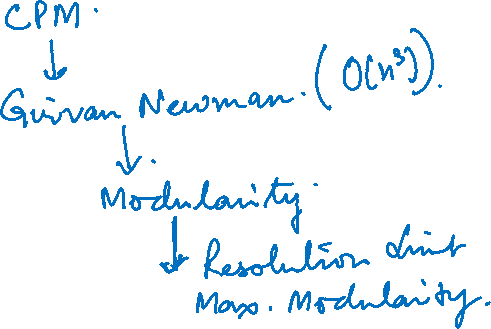 CPM.
Girvan Newman. (O(n³)).
Modularity.
Resolution Limit
Max. Modularity.